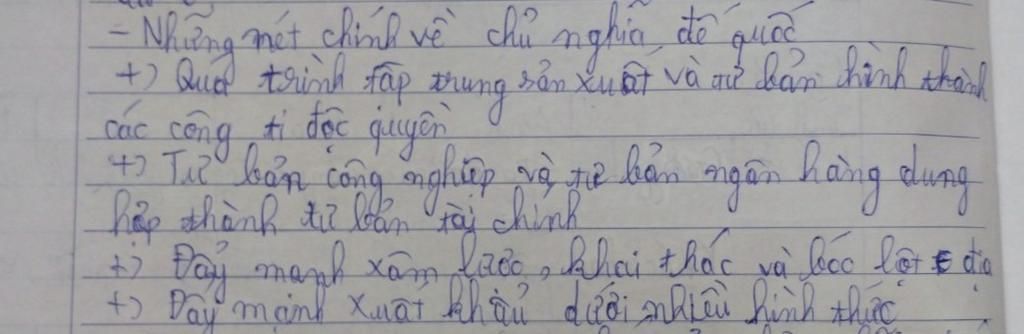 - Những nét chính về chủ nghĩa đế quốc
+) Quá trình tập trung sản xuất và tư bản hình thành
các công ti độc quyền
+) Tư bản công nghiệp và tư bản ngân hàng dung
hợp thành tư bản tài chính
+) Đẩy mạnh xâm lược, khai thác và bóc lột địa
+) Đẩy mạnh xuất khẩu dưới nhiều hình thức